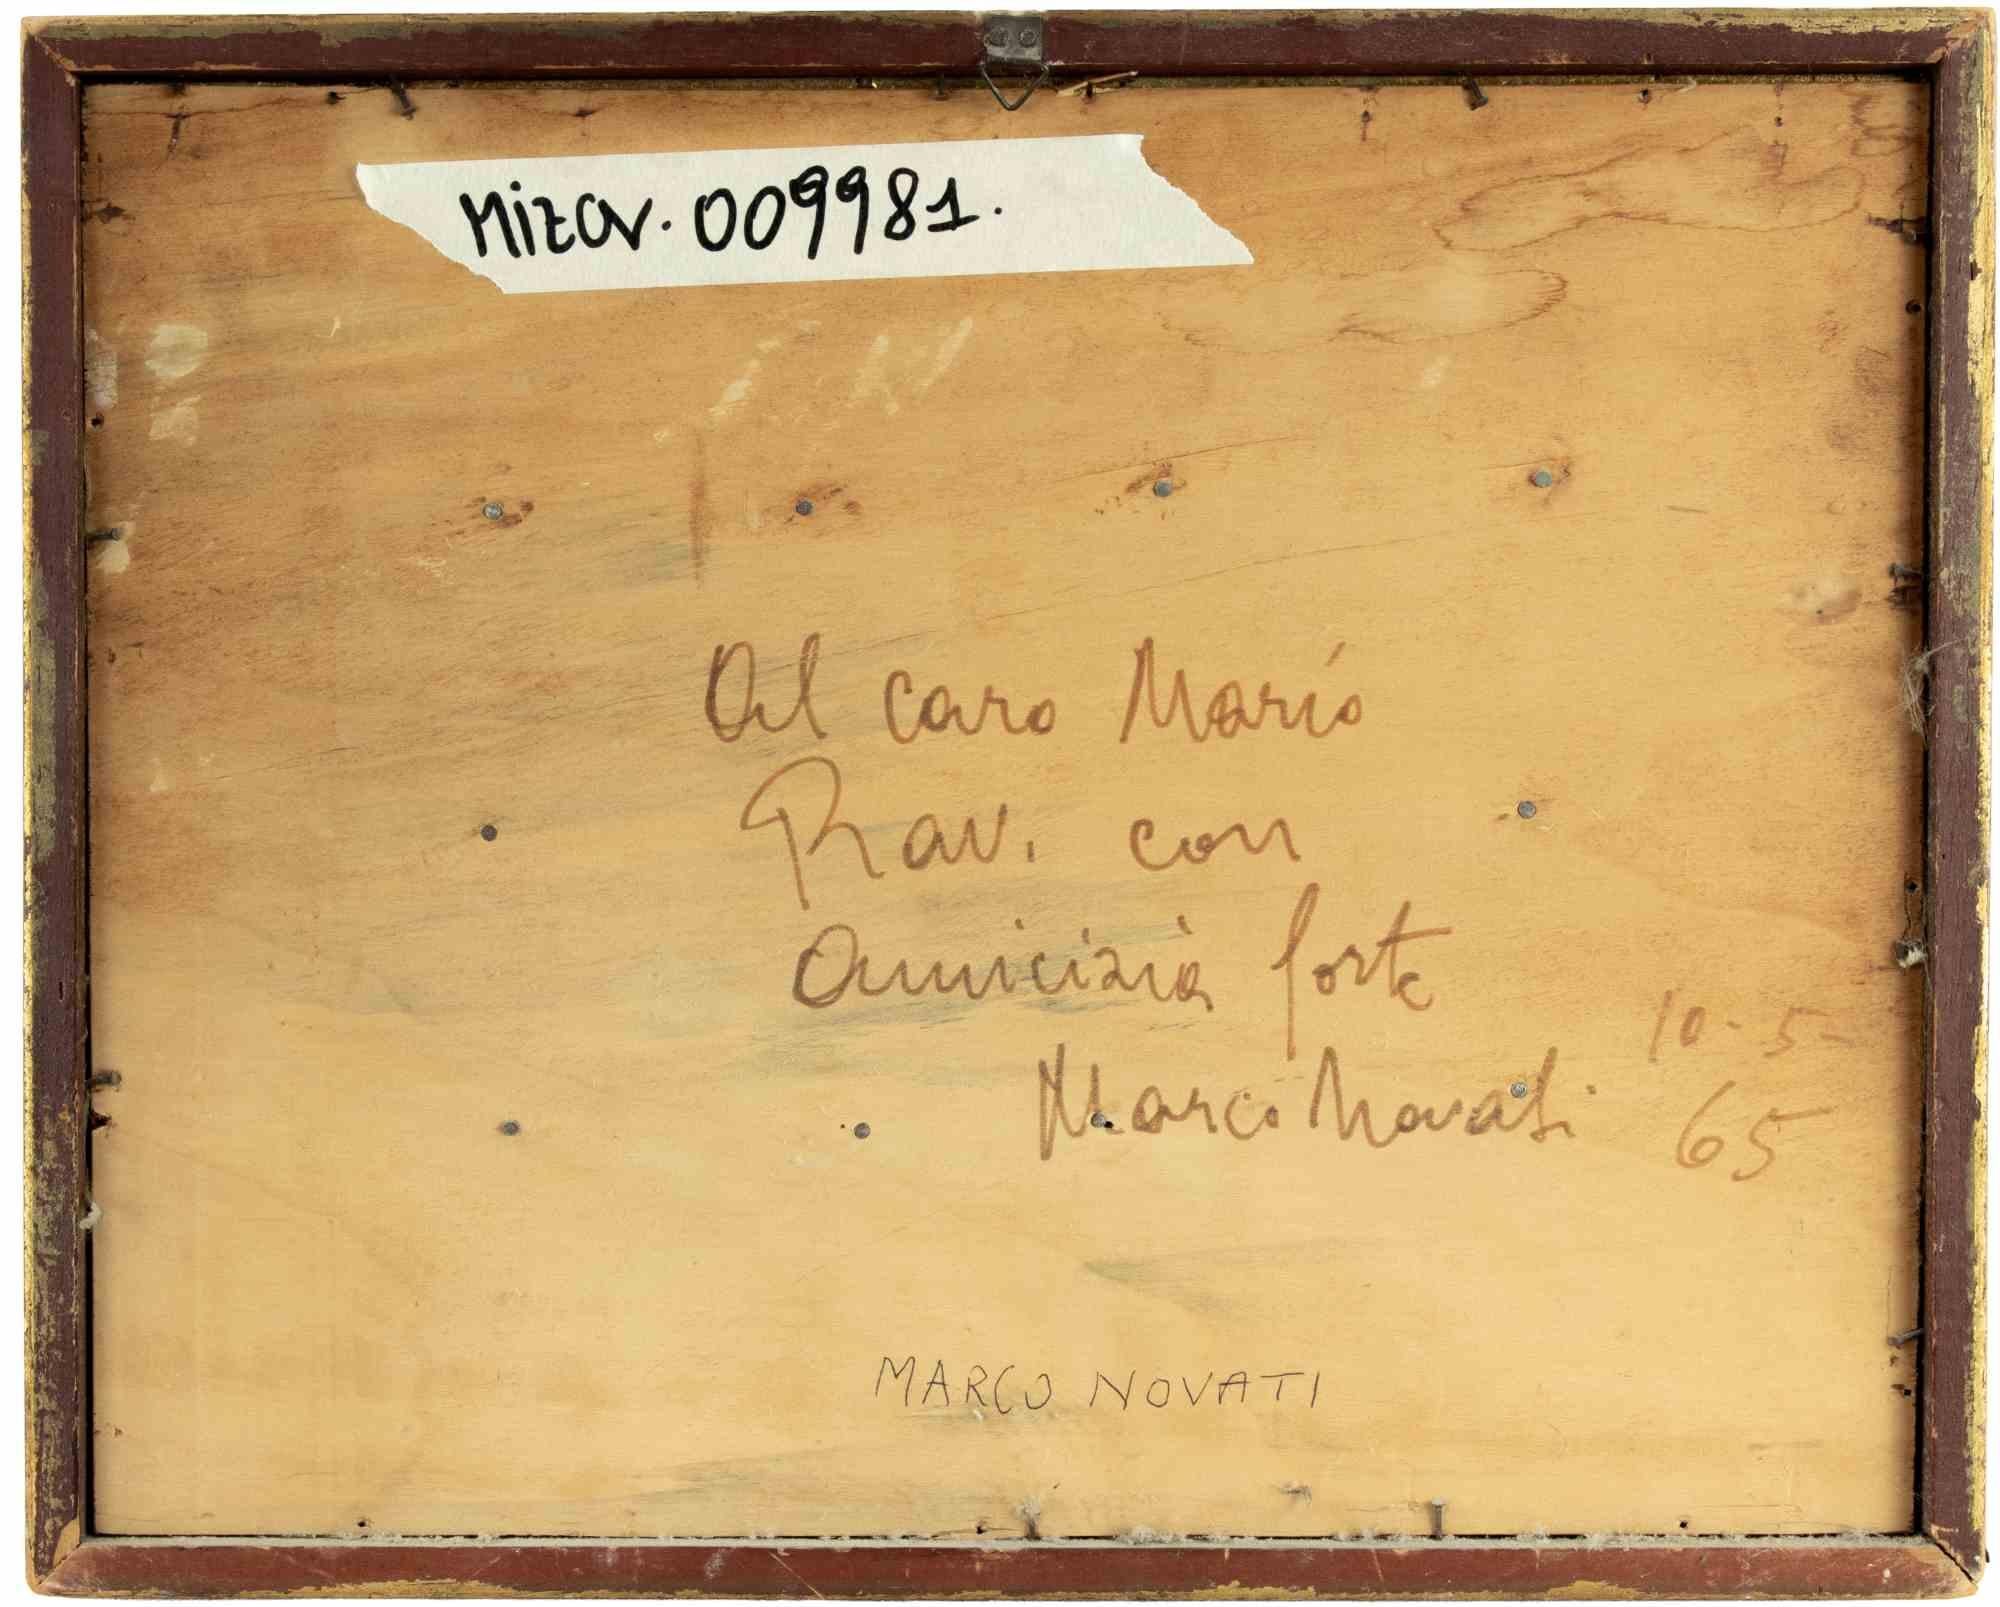 Mizar. 009981.
Al caro Mario
Rav. con
amicizia forte
Marco Novati
10-5-
65
MARCO NOVATI